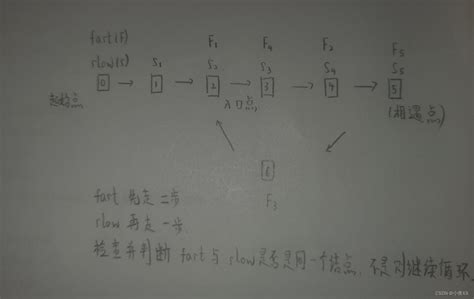 fast(F) F₁ F₄ F₂ F₅
slow(s) S₁ S₂ S₃ S₄ S₅
0 → 1 → 2 → 3 → 4 → 5
起始点 入口点 (相遇点)
6
F₃
fast 先走二步
slow 再走一步
检查并判断 fast与slow是否是同一个结点,不是则继续循环
CSDN @小佬XX